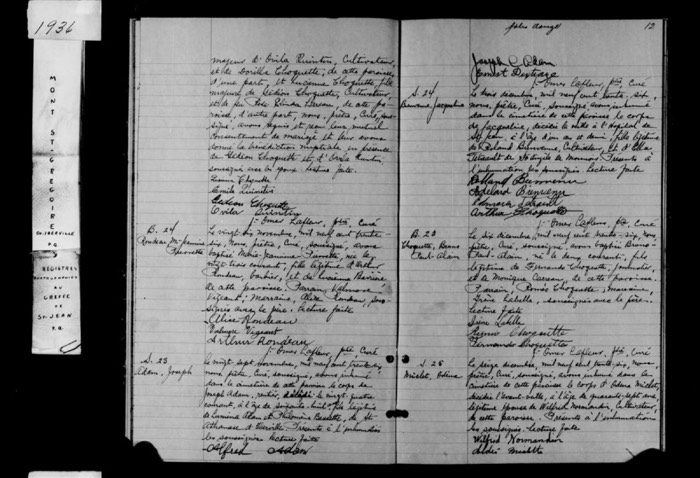 1936
MONT
ST-GREGOIRE
CO. IBERVILLE
P.Q.
REGISTRES
AU
GREFFE
DE
ST-JEAN
P.Q.
majeur d'Ovila Quintin, Cultivateur,
et de Dorilla Choquette, de cette paroisse,
d'une part, et Lucienne Choquette, fille
majeure de Gédéon Choquette, Cultivateur,
et de
roisse, d'autre part, nous, prêtre, Curé, sous-
signé, avons requis et reçu leur mutuel
consentement de mariage et leur avons
donné la bénédiction nuptiale en présence
de Gédéon Choquette et d'Ovila Quintin,
soussignés avec les époux. Lecture faite.
Choquette
Quintin
Gédéon Choquette
Ovila Quintin
J. Omer Lafleur, ptre, Curé
B. 24
Rondeau M. Jeanne
Pierrette
Le vingt-six novembre, mil neuf cent trente-
six, nous, prêtre, Curé, soussigné, avons
baptisé Marie-Jeanne-Pierrette, née le
vingt-trois courant, fille légitime d'Arthur
Rondeau, et de
de cette paroisse. Parrain,
Vigeant; marraine, Alice Rondeau, sous-
signés avec le père. Lecture faite
Alice Rondeau
Vigeant
Arthur Rondeau
J. Omer Lafleur, ptre, Curé
S. 23
Adam, Joseph
Le vingt-sept novembre, mil neuf cent trente-six,
nous, prêtre, Curé, soussigné, avons inhumé
dans le cimetière de cette paroisse le corps de
Joseph Adam, rentier, décédé le vingt-quatre
courant, à l'âge de soixante-huit ans, fils légitime
de Adam et Philomène de St-
Athanase d'Iberville. Présents à l'inhumation
les soussignés. Lecture faite
Alfred Adam
12
Joseph Adam
Ernest
J. Omer Lafleur, ptre, Curé
S. 24
Bienvenue, Jacqueline
Le trois décembre, mil neuf cent trente-six,
nous, prêtre, Curé, soussigné, avons inhumé
dans le cimetière de cette paroisse le corps
de Jacqueline, décédée à l'Hôpital de
St-Jean, à l'âge d'un an et demi, fille légitime
de Roland Bienvenue, Cultivateur, et d'Ella
Tétreault de Présents à
l'inhumation les soussignés. Lecture faite
Rolland Bienvenue
Adélard Bienvenue
Arthur Choquette
J. Omer Lafleur, ptre, Curé
B. 25
Choquette, Bruno
Paul-Alain
Le dix décembre, mil neuf cent trente-six, nous,
prêtre, Curé, soussigné, avons baptisé Bruno-
Paul-Alain, né le cinq courant, fils
légitime de Fernando Choquette, journalier,
et de Monique de cette paroisse.
Parrain, Choquette; marraine,
Irène Labelle, soussignés avec le père.
Lecture faite
Irène Labelle
Choquette
Fernando Choquette
J. Omer Lafleur, ptre, Curé
S 25
Miclet, Odina
Le seize décembre, mil neuf cent trente-six, nous,
prêtre, Curé, soussigné, avons inhumé dans le
cimetière de cette paroisse le corps d'Odina Miclet,
décédée l'avant-veille, à l'âge de quarante-sept ans,
légitime épouse de Wilfrid Normandin, Cultivateur,
de cette paroisse. Présents à l'inhumation
les soussignés. Lecture faite
Wilfrid Normandin